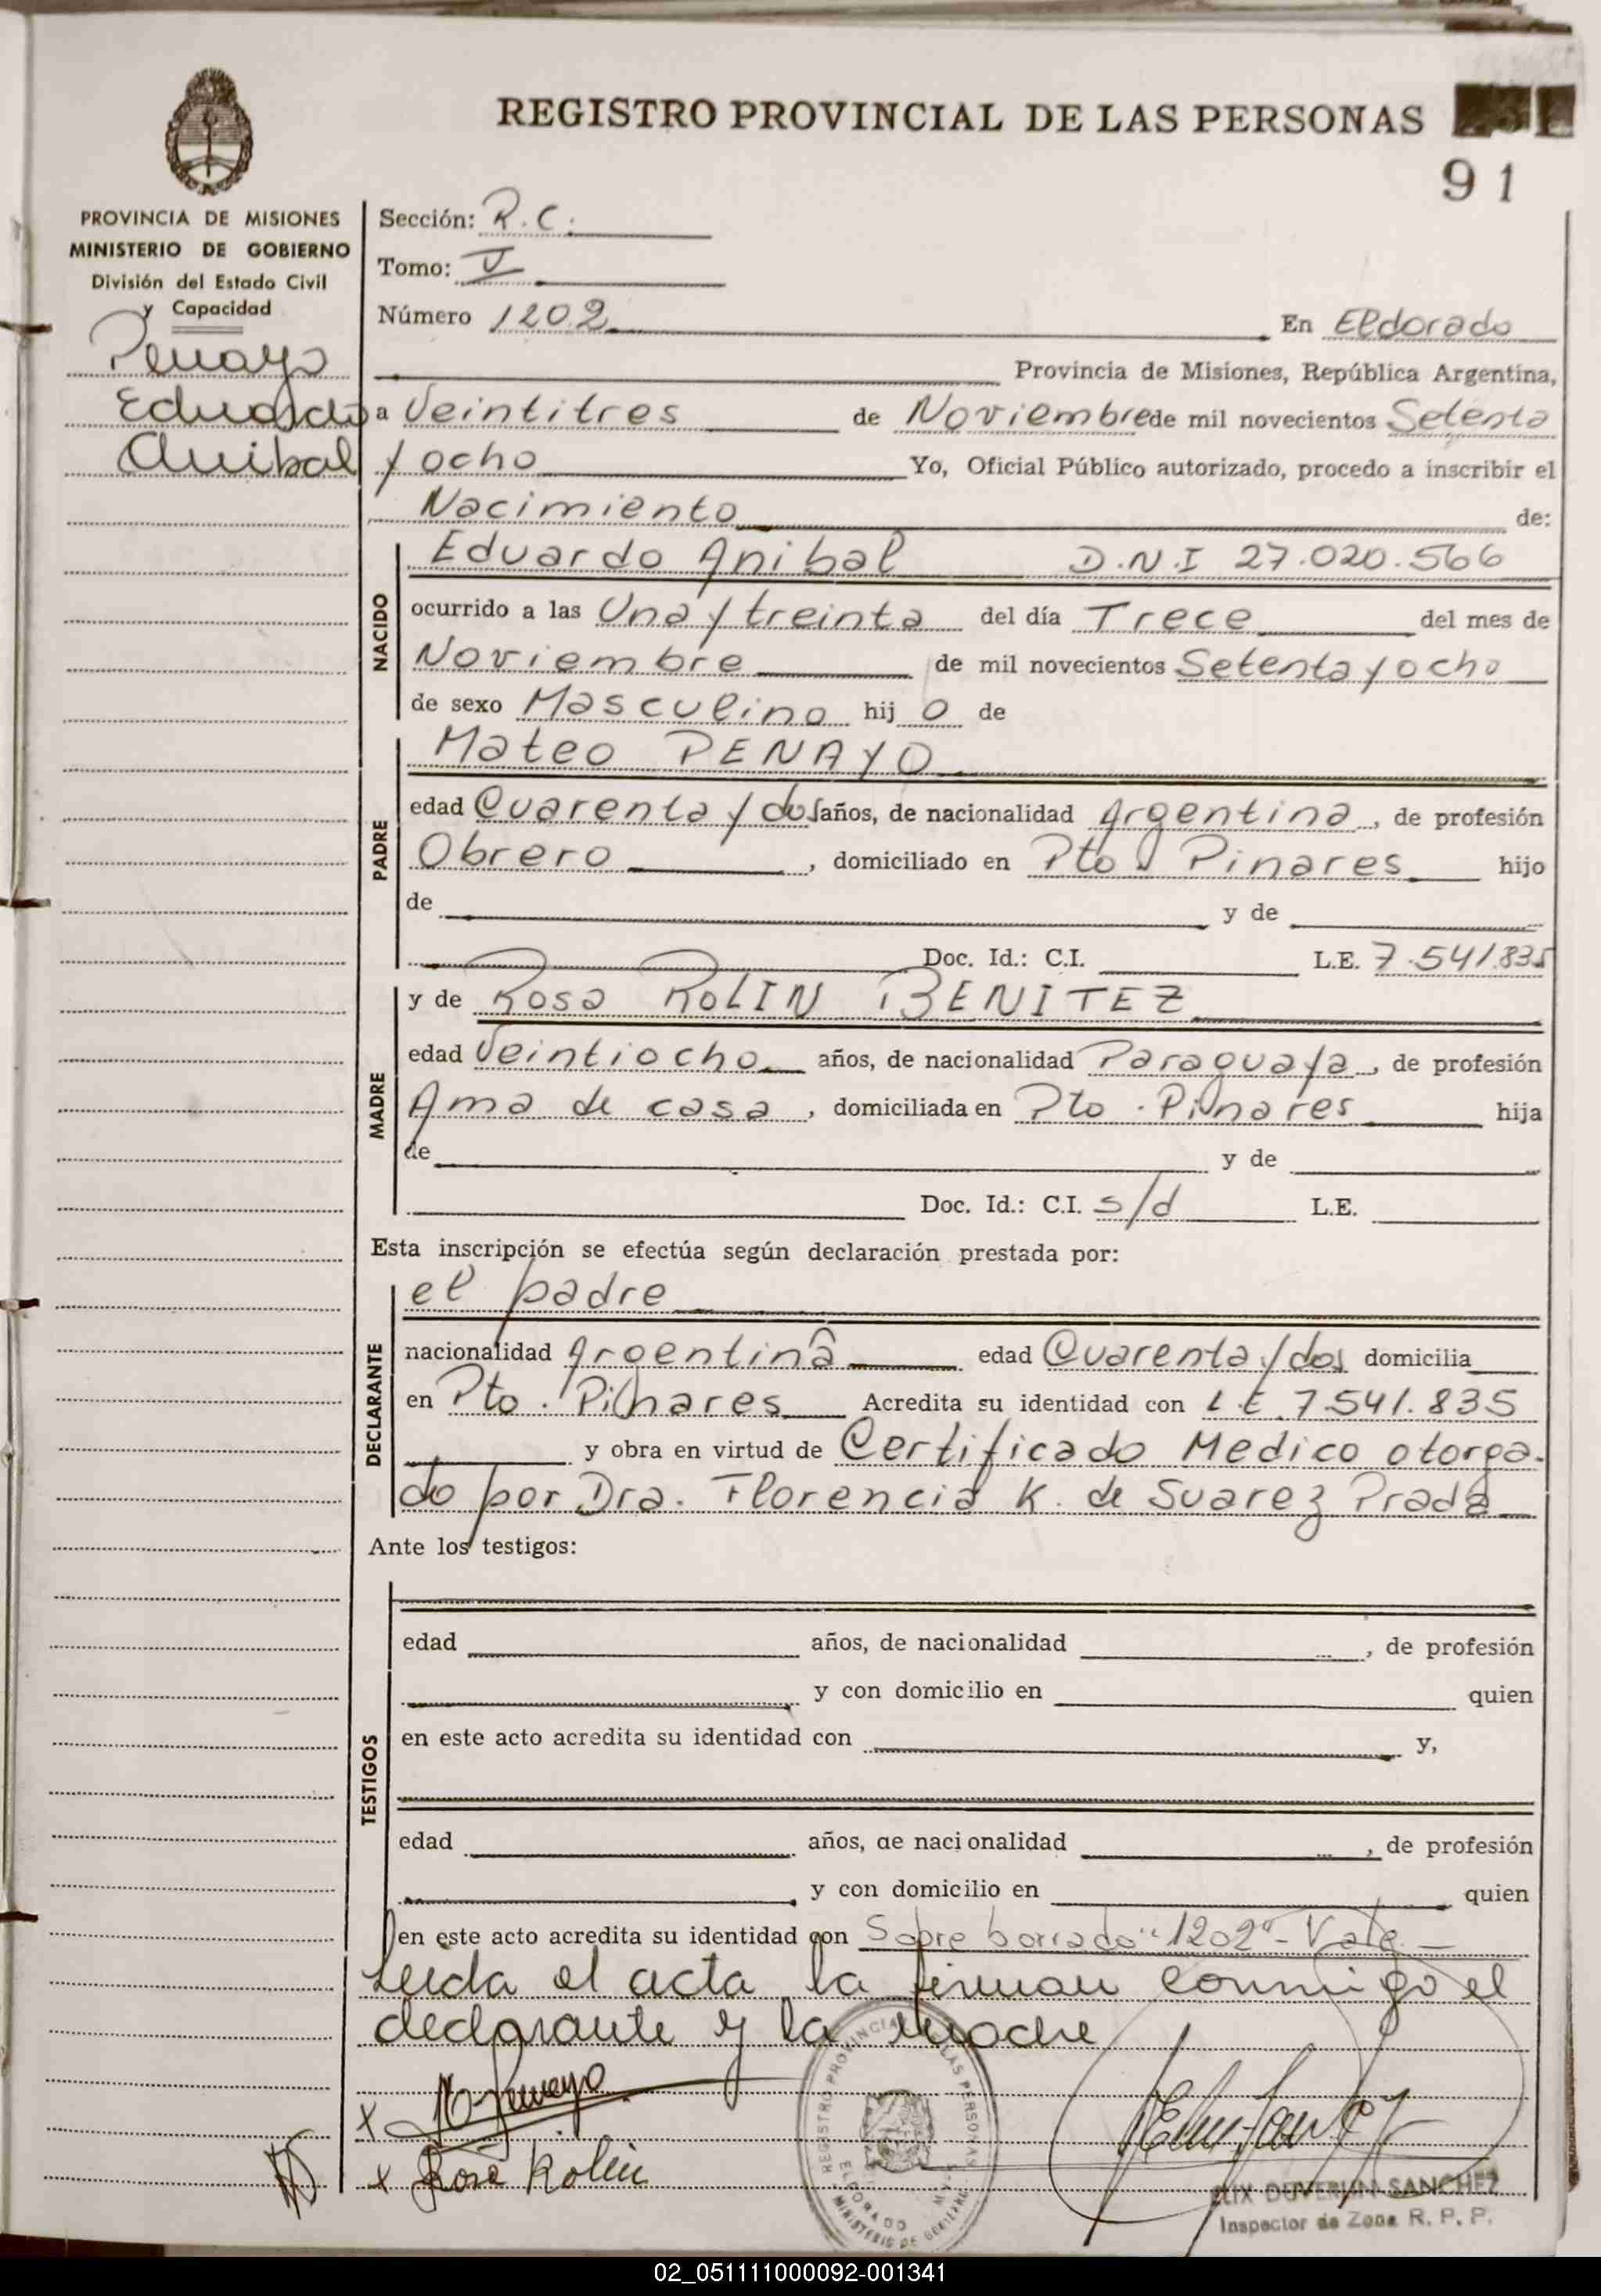 REGISTRO PROVINCIAL DE LAS PERSONAS
91
PROVINCIA DE MISIONES
MINISTERIO DE GOBIERNO
División del Estado Civil
y Capacidad
Penayo
Eduardo
Anibal
Sección: R.C.
Tomo: V
Número 1202 En Eldorado
Provincia de Misiones, República Argentina,
a Veintitres de Noviembre de mil novecientos Setenta
y ocho Yo, Oficial Público autorizado, procedo a inscribir el
Nacimiento de:
NACIDO
Eduardo Anibal D.N.I 27.020.566
ocurrido a las Una y treinta del día Trece del mes de
Noviembre de mil novecientos Setenta y ocho
de sexo Masculino hij o de
PADRE
Mateo PENAYO
edad Cuarenta y dos años, de nacionalidad Argentina, de profesión
Obrero, domiciliado en Pto Pinares hijo
de y de
Doc. Id.: C.I. L.E. 7.541.835
MADRE
y de Rosa ROLIN BENITEZ
edad Veintiocho años, de nacionalidad Paraguaya, de profesión
Ama de casa, domiciliada en Pto. Pinares hija
de y de
Doc. Id.: C.I. s/d L.E.
Esta inscripción se efectúa según declaración prestada por:
DECLARANTE
el padre
nacionalidad Argentina edad Cuarenta y dos domicilia
en Pto. Pinares Acredita su identidad con L.E 7.541.835
y obra en virtud de Certificado Medico otorga-
do por Dra. Florencia K. de Suarez Prada
Ante los testigos:
TESTIGOS
edad años, de nacionalidad , de profesión
y con domicilio en quien
en este acto acredita su identidad con y,
edad años, de nacionalidad , de profesión
y con domicilio en quien
en este acto acredita su identidad con Sobre borrado "1202" - Vale.-
Leida el acta la firman conmigo el
declarante y la madre
x M Penayo
x Rosa Rolin
REGISTRO PROVINCIAL DE LAS PERSONAS
ELDORADO
MINISTERIO DE GOBIERNO
FELIX DUVERLIN SANCHEZ
Inspector de Zona R. P. P.
02_051111000092-001341